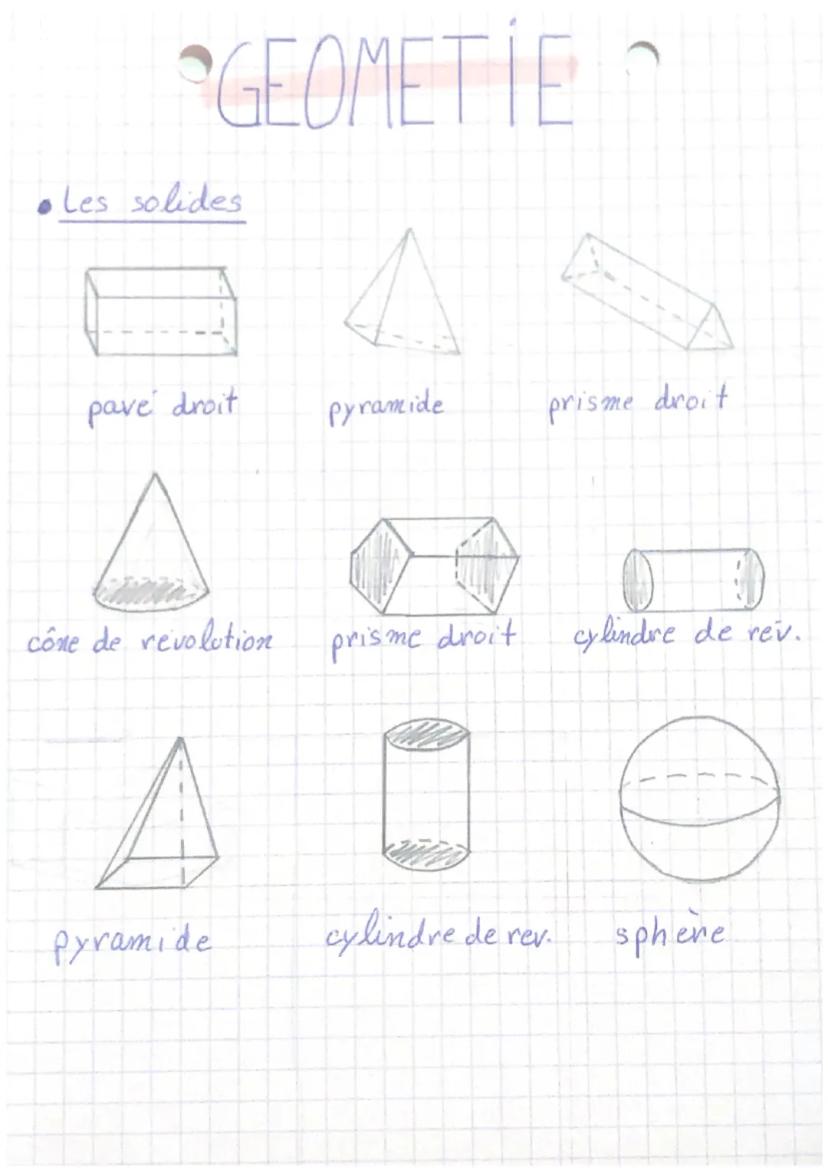 GEOMETIE
• Les solides
pavé droit pyramide prisme droit
cône de révolution prisme droit cylindre de rév.
pyramide cylindre de rev. sphère